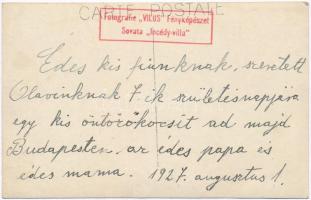 CARTE POSTALE
Fotografie „VILUS” Fényképészet
Sovata „Ipcédy-villa”
Édes kis fiunknak, szeretett
Olavinknak 7.-ik születésnapjára
egy kis öntözőkocsit ad majd
Budapesten, az édes papa és
édes mama. 1927. augusztus 1.